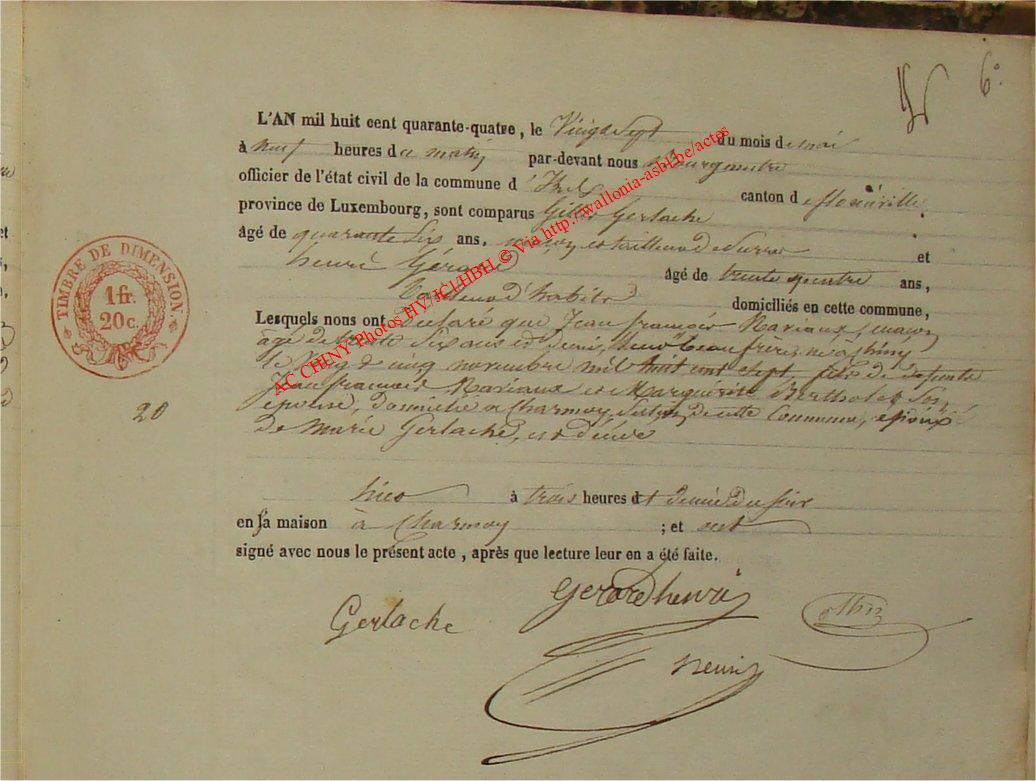 6°
L'AN mil huit cent quarante-quatre, le Vingt Sept du mois de mai
à neuf heures du matin par-devant nous bourgmestre
officier de l'état civil de la commune d' Izel canton de florenville
province de Luxembourg, sont comparus Gilles Gerlache
âgé de quarante Six ans, maçon et tailleur de Pierres et
henri Gérard âgé de trente quatre ans,
tailleur d'habits domiciliés en cette commune,
Lesquels nous ont declaré que Jean françois Mariaux, maçon
âgé de trente Six ans et demi, beau frère, né à Chiny
le vingt cinq novembre mil huit cent sept fils de
Jean françois Mariaux et Marguerite Berthólet Son
épouse, domicilié à Charmoy, Section de cette Commune, époux
de Marie Gerlache, est décédé
hier à trois heures et demie du soir
en sa maison à Charmoy ; et ont
signé avec nous le présent acte, après que lecture leur en a été faite.
TIMBRE DE DIMENSION.
1 fr.
20 c.
20
Gerlache
Gerard henri
AC CHINY Photos HV/JCL/HBH © Via http://wallonia-asbl.be/actes